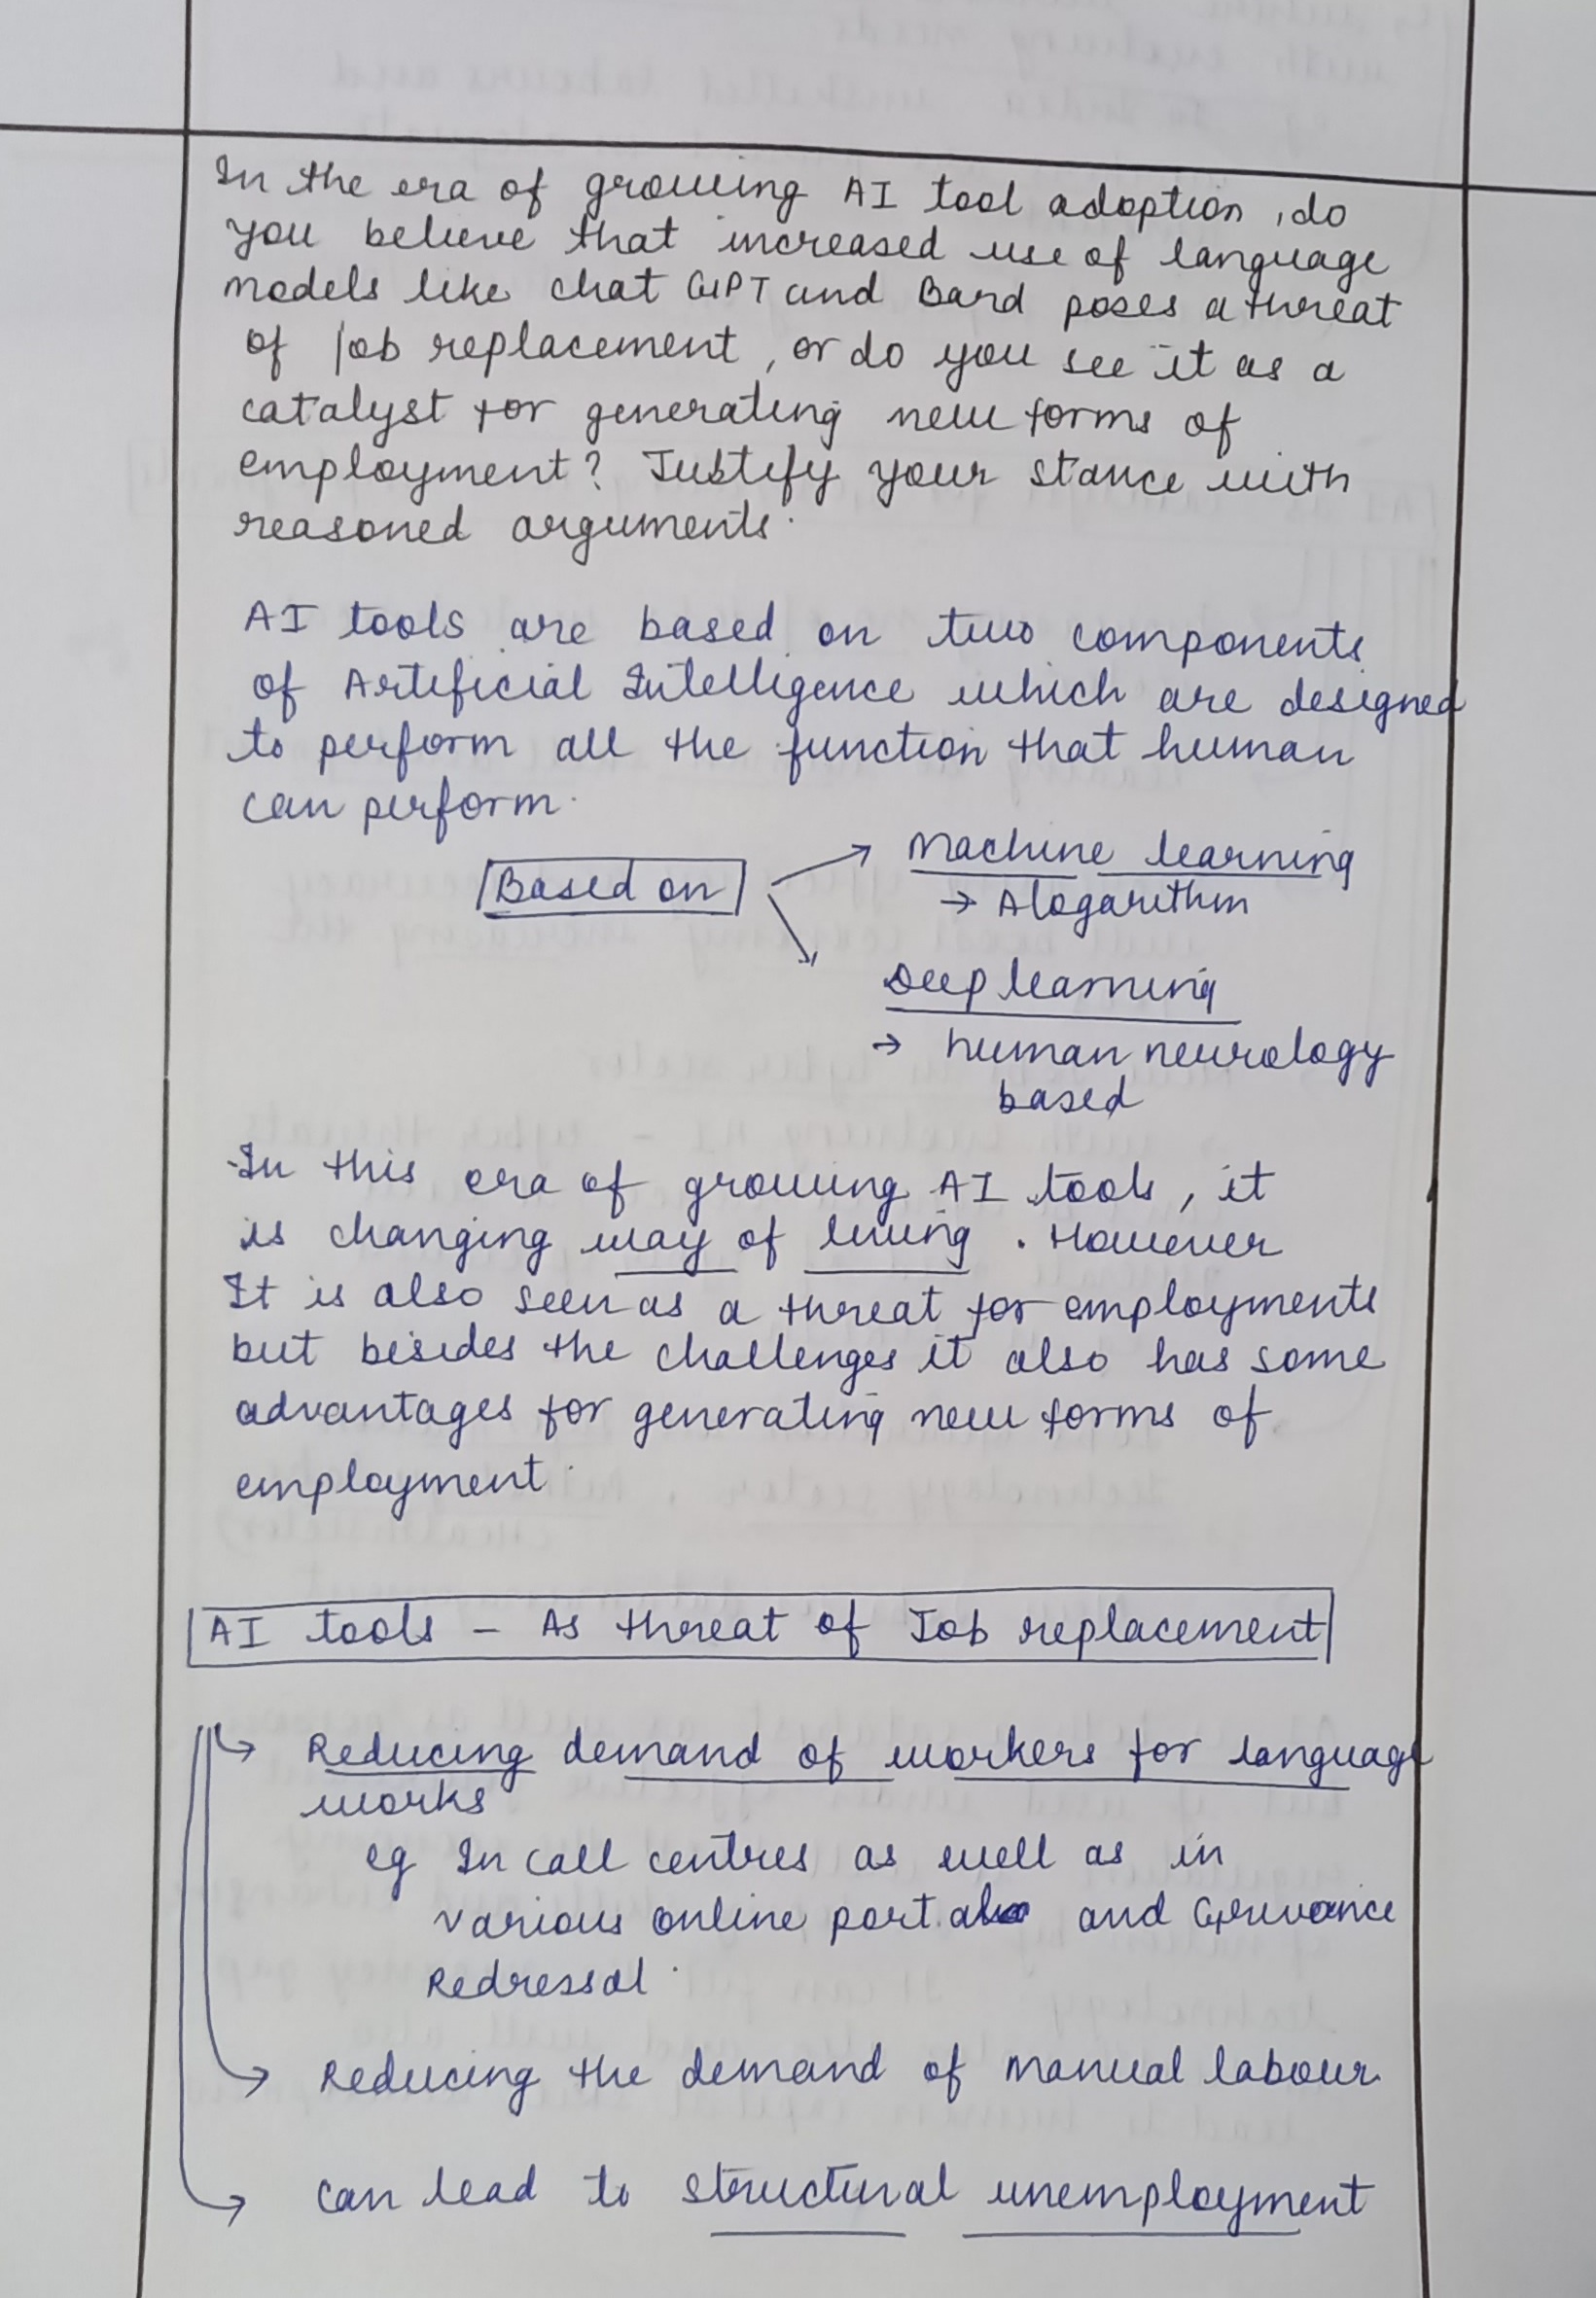 In the era of growing AI tool adoption, do
you believe that increased use of language
models like chat GPT and Bard poses a threat
of job replacement, or do you see it as a
catalyst for generating new forms of
employment? Justify your stance with
reasoned arguments.
AI tools are based on two components
of Artificial Intelligence which are designed
to perform all the function that human
can perform.
Based on
Machine learning
→ Alogarithm
Deep learning
→ human neurology
based
In this era of growing AI tools, it
is changing way of living. However
It is also seen as a threat for employments
but besides the challenges it also has some
advantages for generating new forms of
employment.
AI tools - As threat of Job replacement
→ Reducing demand of workers for language
works
eg In call centres as well as in
various online portals and Grievance
Redressal.
→ Reducing the demand of manual labour
→ can lead to structural unemployment